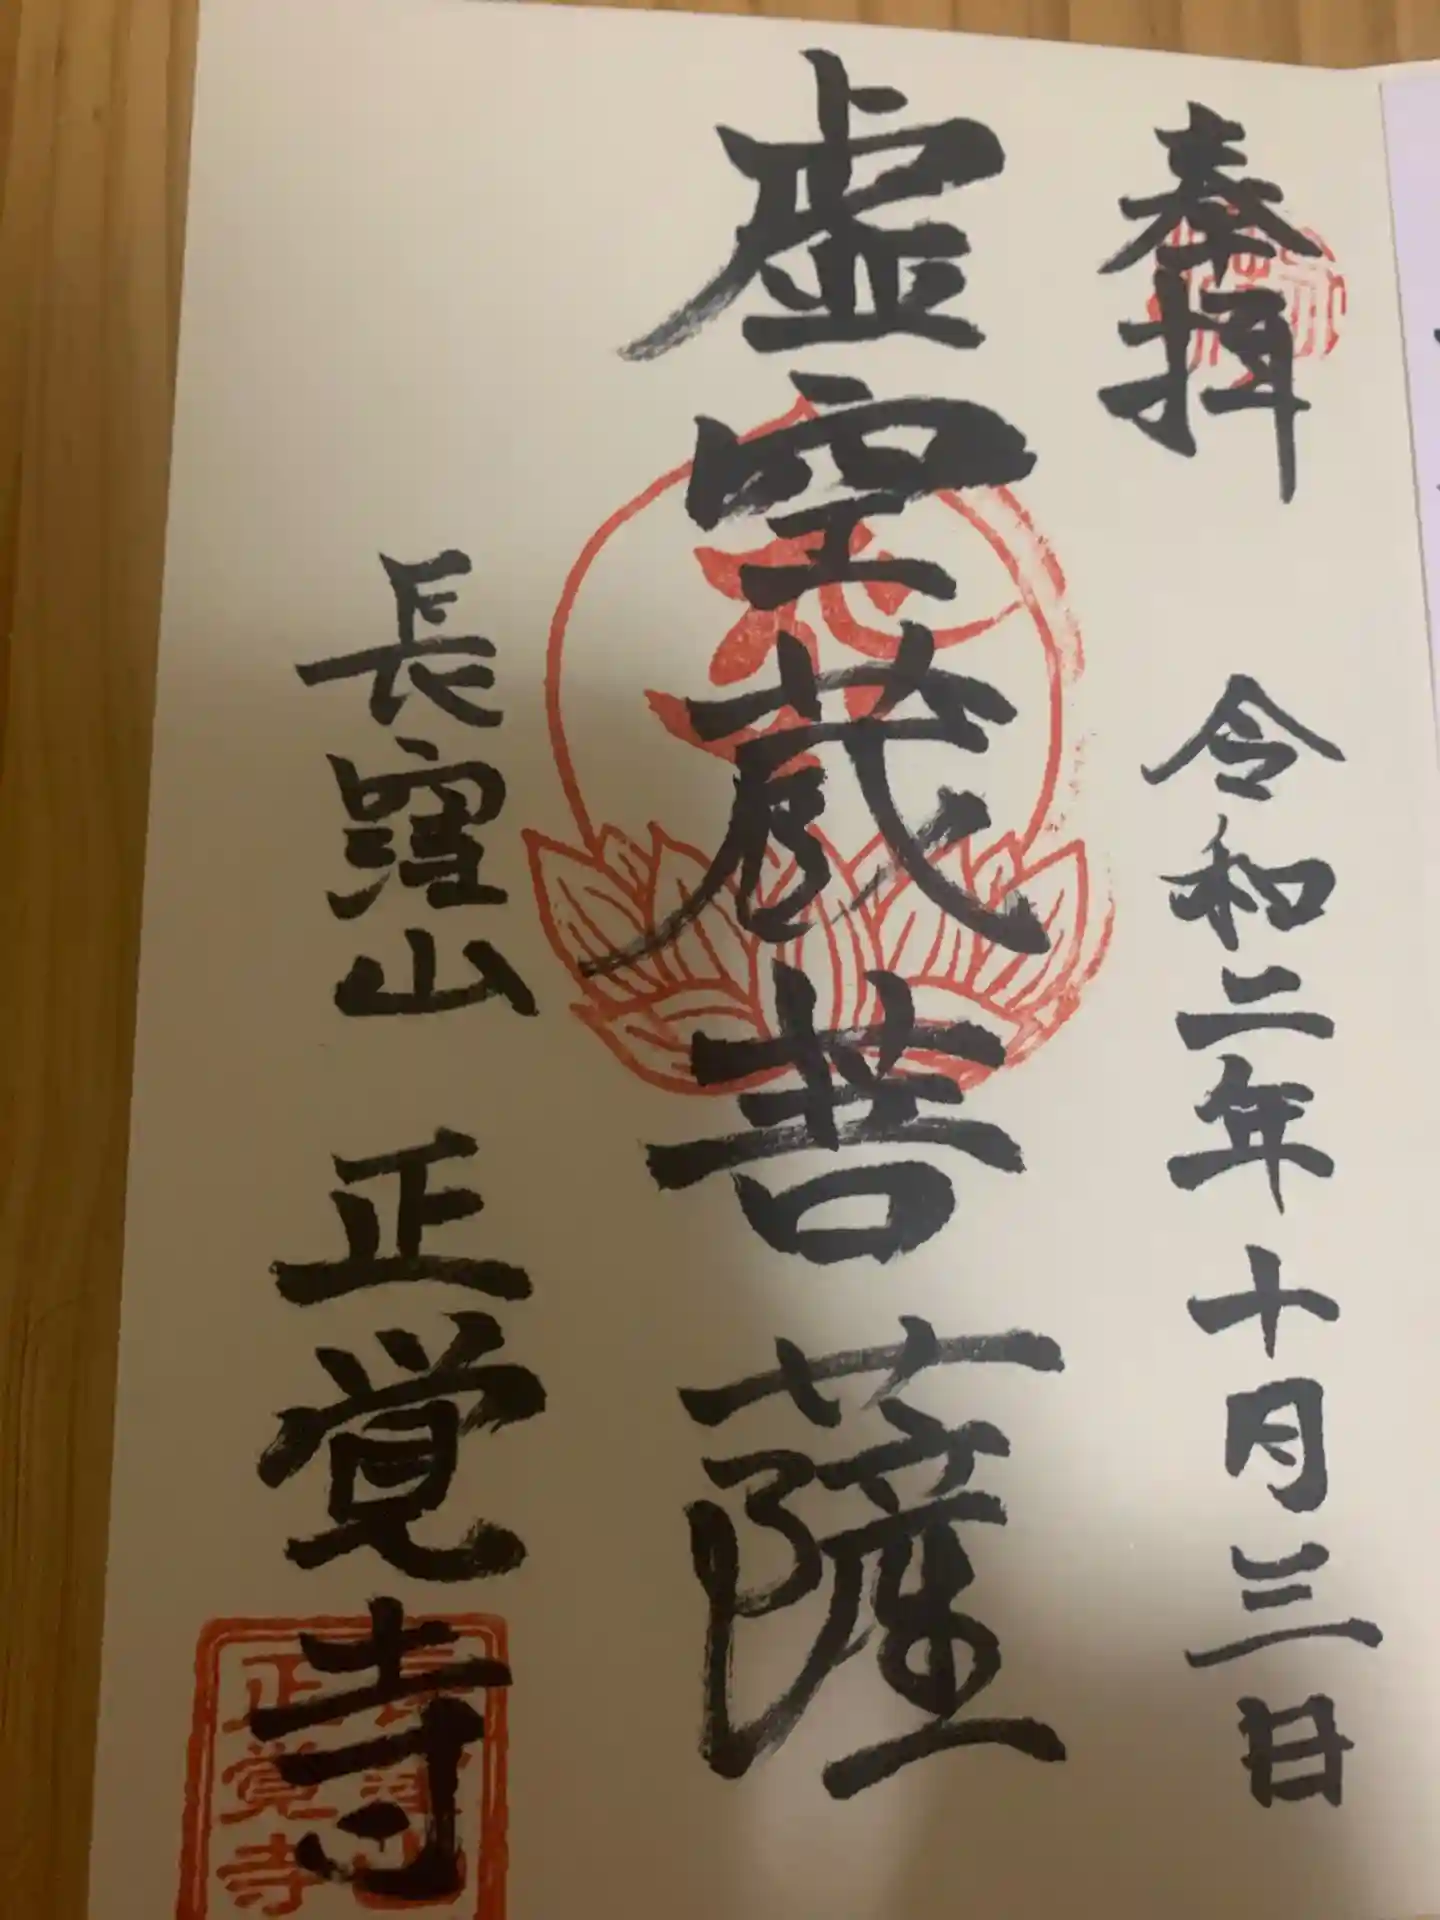 奉拝
令和二年十月三日
虚空蔵菩薩
長窪山 正覚寺
正覚寺